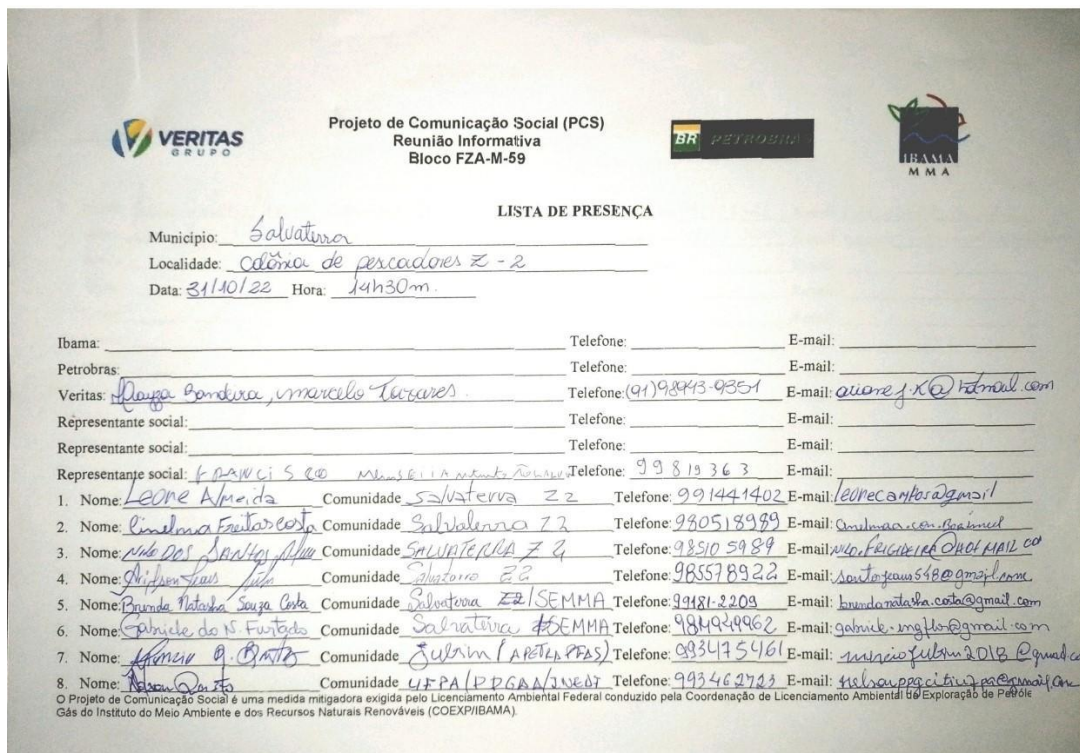 VERITAS
GRUPO
Projeto de Comunicação Social (PCS)
Reunião Informativa
Bloco FZA-M-59
BR PETROBRAS
IBAMA
MMA
LISTA DE PRESENÇA
Município: Salvaterra
Localidade: Colônia de pescadores Z-2
Data: 31/10/22 Hora: 14h30m.
Ibama: Telefone: E-mail:
Petrobras: Telefone: E-mail:
Veritas: Bandeira, Marcelo Tavares. Telefone: (91)98943-9351 E-mail: ariane.j.k@hotmail.com
Representante social: Telefone: E-mail:
Representante social: Telefone: E-mail:
Representante social: FRANCISCO Telefone: 99819363 E-mail:
1. Nome: Leone Almeida Comunidade Salvaterra Z2 Telefone: 991441402 E-mail: leonecamposa@gmail
2. Nome: Cinelma Freitas costa Comunidade Salvaterra Z2 Telefone: 980518989 E-mail:
3. Nome: NILO DOS SANTOS Comunidade SALVATERRA Z 2 Telefone: 98510 5989 E-mail:
4. Nome: Comunidade Salvaterra Z2 Telefone: 985578922 E-mail:
5. Nome: Brenda Natasha Souza Costa Comunidade Salvaterra Z2/SEMMA Telefone: 99181-2209 E-mail: brendanatasha.costa@gmail.com
6. Nome: Gabriele do N. Furtado Comunidade Salvaterra SEMMA Telefone: 984949962 E-mail: gabriele-engflor@gmail.com
7. Nome: Comunidade Jubim Telefone: 993475461 E-mail: marciojubim2018@gmail.co
8. Nome: Nelson Comunidade UFPA/PPGAA/INEAF Telefone: 993462723 E-mail:
O Projeto de Comunicação Social é uma medida mitigadora exigida pelo Licenciamento Ambiental Federal conduzido pela Coordenação de Licenciamento Ambiental de Exploração de Petróle
Gás do Instituto do Meio Ambiente e dos Recursos Naturais Renováveis (COEXP/IBAMA).